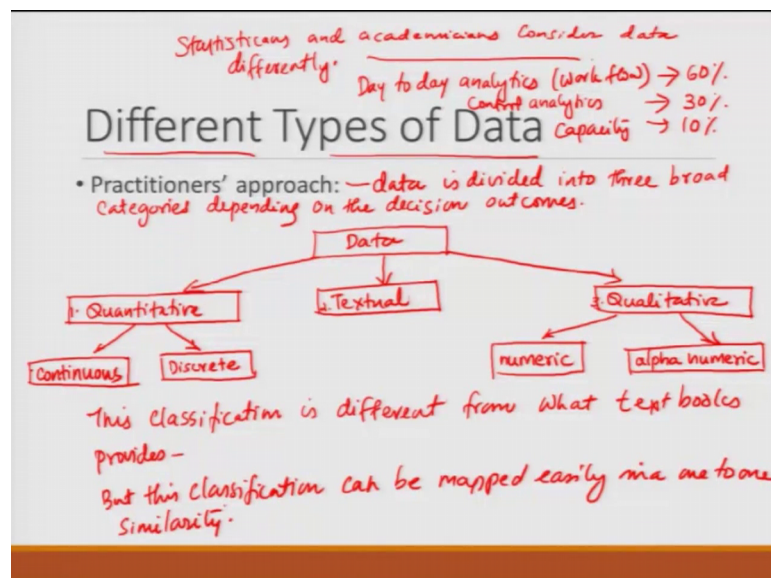 Statisticans and academicians Consider data
differently.
Day to day analytics (Work flow) → 60%.
Control analytics → 30%.
Different Types of Data Capacity → 10%.
• Practitioners' approach: — data is divided into three broad
Categories depending on the decision outcomes.
Data
1. Quantitative 2. Textual 3. Qualitative
Continuous Discrete numeric alpha numeric
This Classification is different from what text books
provides —
But this Classification can be mapped easily in a one to one
Similarity.